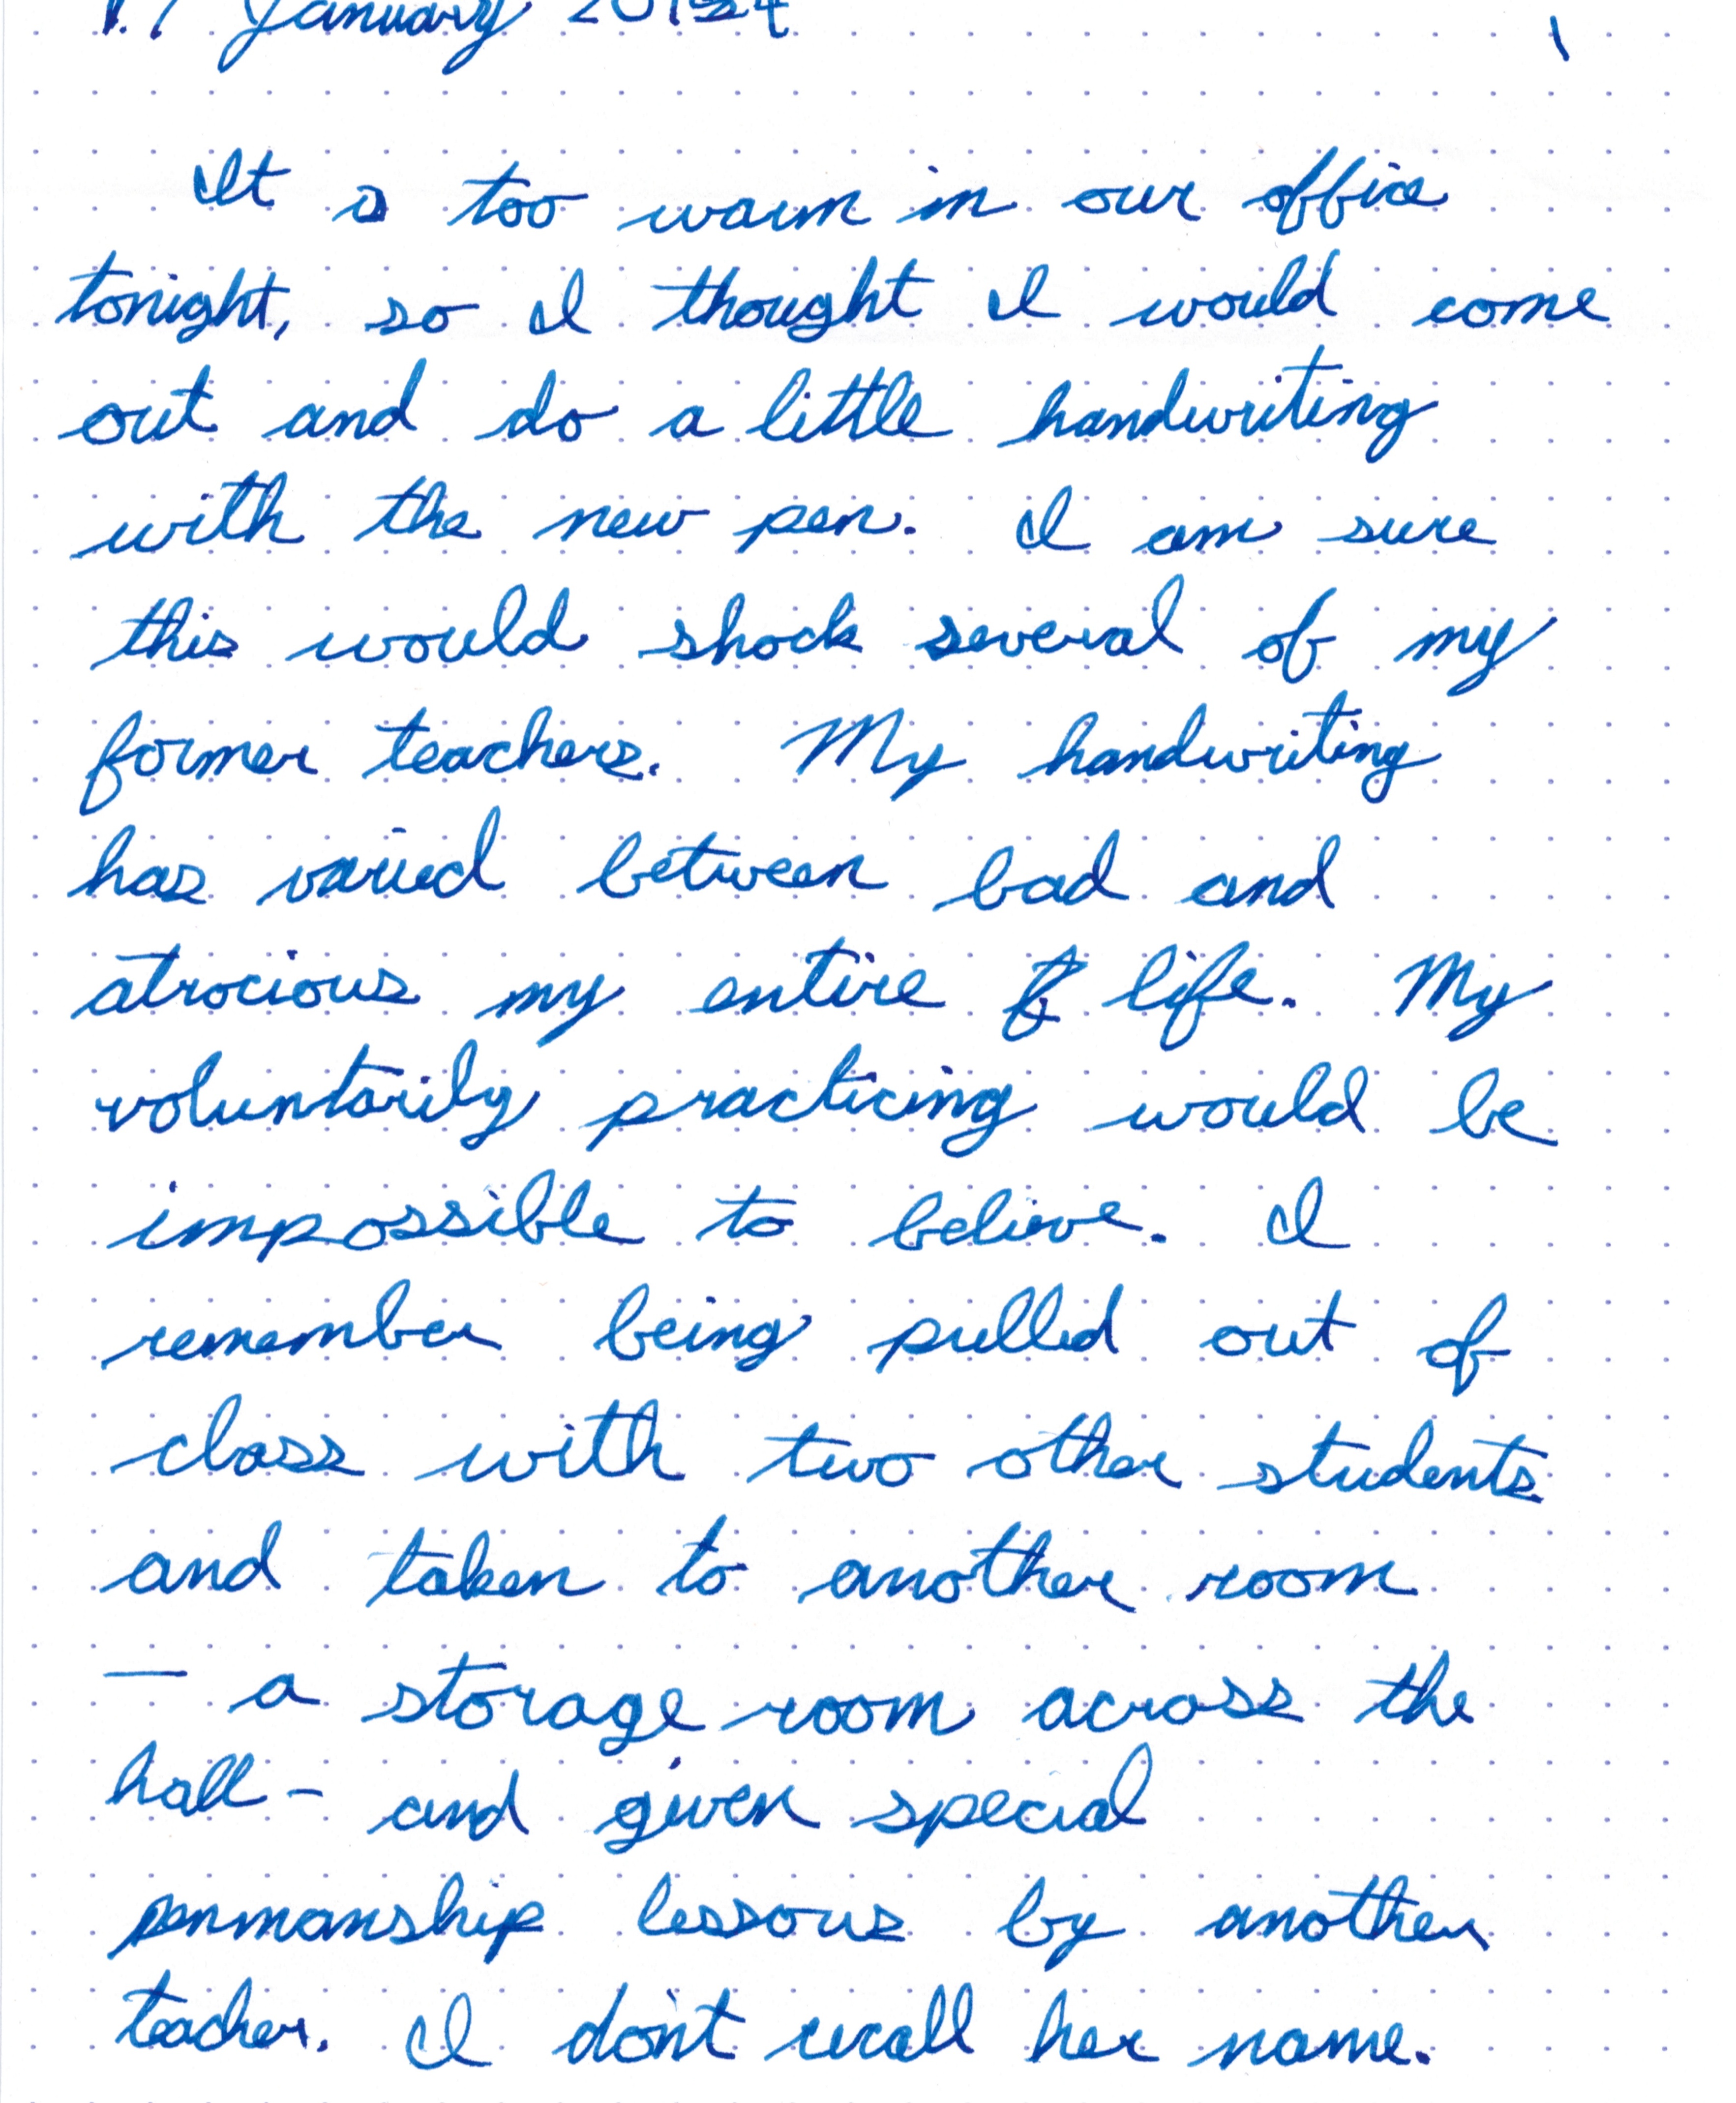 January
It is too warm in our office
tonight, so I thought I would come
out and do a little handwriting
with the new pen. I am sure
this would shock several of my
former teachers. My handwriting
has varied between bad and
atrocious my entire life. My
voluntarily practicing would be
impossible to believe. I
remember being pulled out of
class with two other students
and taken to another room
— a storage room across the
hall - and given special
penmanship lessons by another
teacher. I don't recall her name.